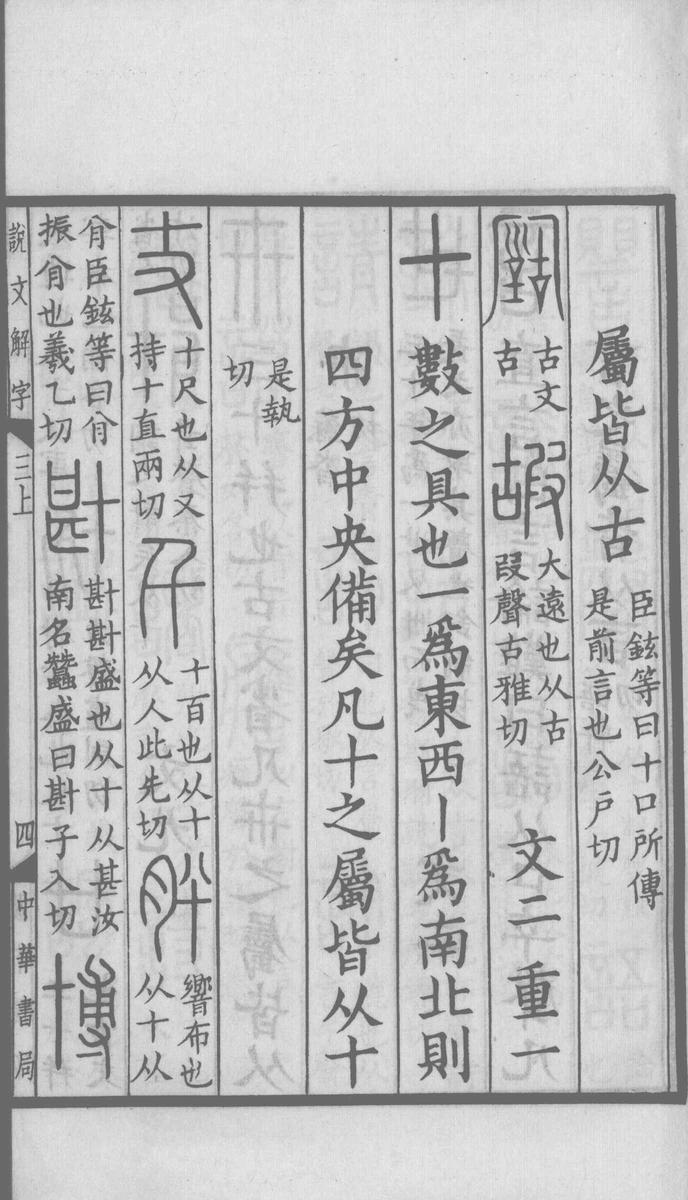 屬皆从古
臣鉉等曰十口所傳
是前言也公戶切
古文
古
嘏
大遠也从古
叚聲古雅切
文二 重一
十 數之具也一爲東西丨爲南北則
四方中央備矣凡十之屬皆从十
是執
切
丈
十尺也从又
持十直兩切
千
十百也从十
从人此先切
肸
響布也
从十从
𦙝臣鉉等曰𦙝
振𦙝也羲乙切
卙
卙卙盛也从十从甚汝
南名蠶盛曰卙子入切
博
說文解字 三上 四 中華書局